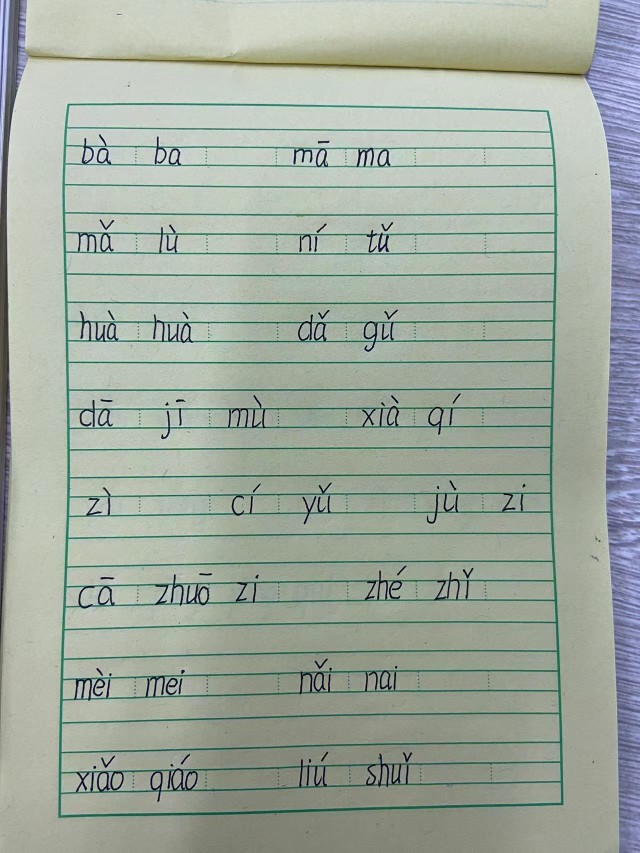 bà ba mā ma
mǎ lù ní tǔ
huà huà dǎ gǔ
dā jī mù xià qí
zì cí yǔ jù zi
cā zhuō zi zhé zhǐ
mèi mei nǎi nai
xiǎo qiáo liú shuǐ